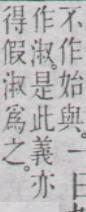 不作始與。一曰
作淑。是此義亦
得假淑爲之。